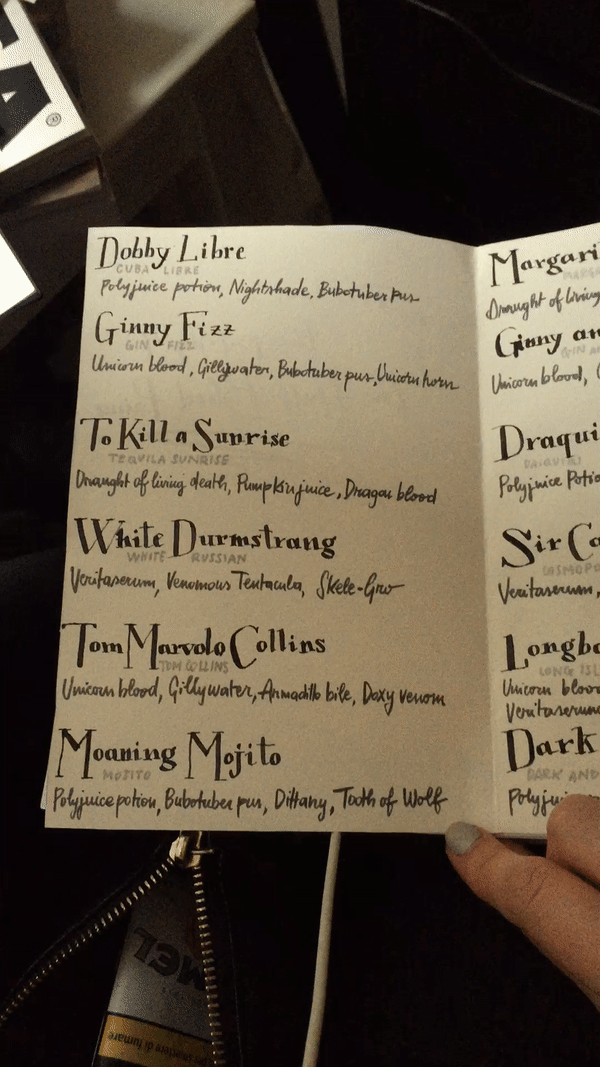 Dobby Libre
CUBA LIBRE
Polyjuice potion, Nightshade, Bubotuber pus
Ginny Fizz
GIN FIZZ
Unicorn blood, Gillywater, Bubotuber pus, Unicorn horn
To Kill a Sunrise
TEQUILA SUNRISE
Draught of living death, Pumpkin juice, Dragon blood
White Durmstrang
WHITE RUSSIAN
Veritaserum, Venomous Tentacula, Skele-Gro
Tom Marvolo Collins
TOM COLLINS
Unicorn blood, Gillywater, Armadillo bile, Doxy venom
Moaning Mojito
MOJITO
Polyjuice potion, Bubotuber pus, Dittany, Tooth of Wolf
Margari
MARGA
Draught of living
Ginny an
GIN AN
Unicorn blood, G
Draqui
DAIQUIRI
Polyjuice Potio
Sir Co
COSMOPO
Veritaserum,
Longbo
LONG ISL
Unicorn blood
Veritaserum
Dark
DARK AND
Polyjui
MEL